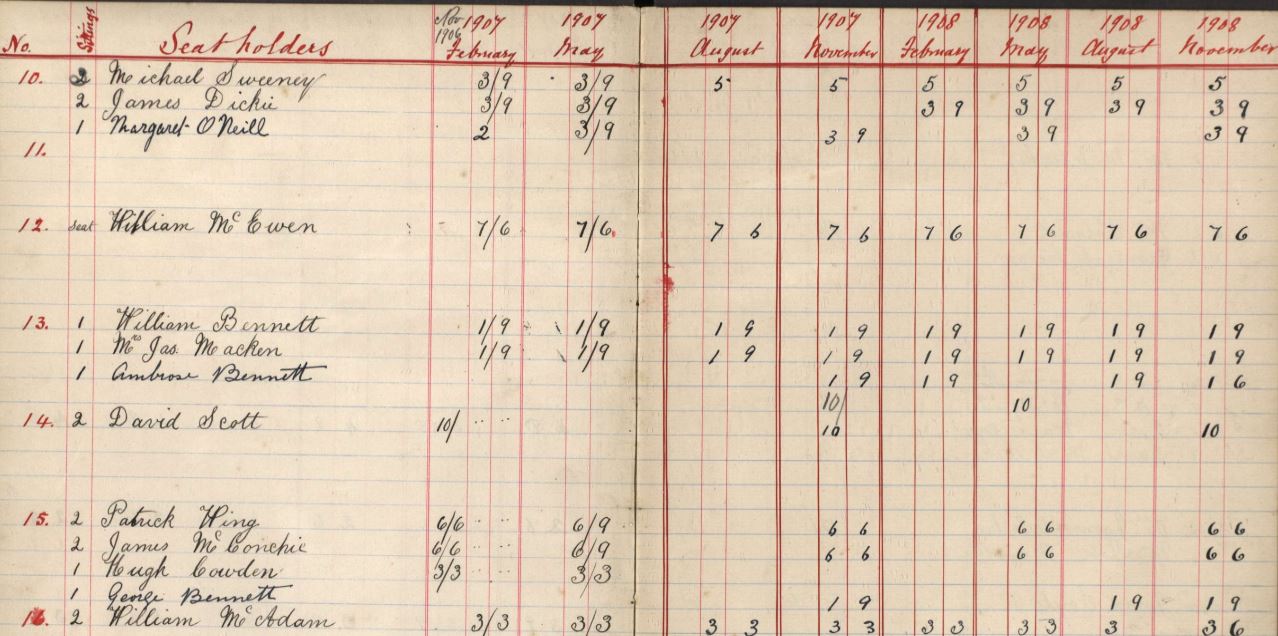 Nov 1907 1907 1907 1907 1908 1908 1908 1908
No. Sittings Seatholders 1906 February May August November February May August November
10. 2 Michael Sweeney 3/9 3/9 5 5 5 5 5 5
2 James Dickie 3/9 3/9 3 9 3 9 3 9 3 9
1 Margaret O'Neill 2 3/9 3 9 3 9 3 9
11.
12. seat William McEwen 7/6 7/6 7 6 7 6 7 6 7 6 7 6 7 6
13. 1 William Bennett 1/9 1/9 1 9 1 9 1 9 1 9 1 9 1 9
1 Mrs Jas. Macken 1/9 1/9 1 9 1 9 1 9 1 9 1 9 1 9
1 Ambrose Bennett 1 9 1 9 1 9 1 6
10/ 10
14. 2 David Scott 10/ 10 10
15. 2 Patrick Wing 6/6 6/9 6 6 6 6 6 6
2 James McConchie 6/6 6/9 6 6 6 6 6 6
1 Hugh Cowden 3/3 3/3
1 George Bennett 1 9 1 9 1 9
16. 2 William McAdam 3/3 3/3 3 3 3 3 3 3 3 3 3 3 6